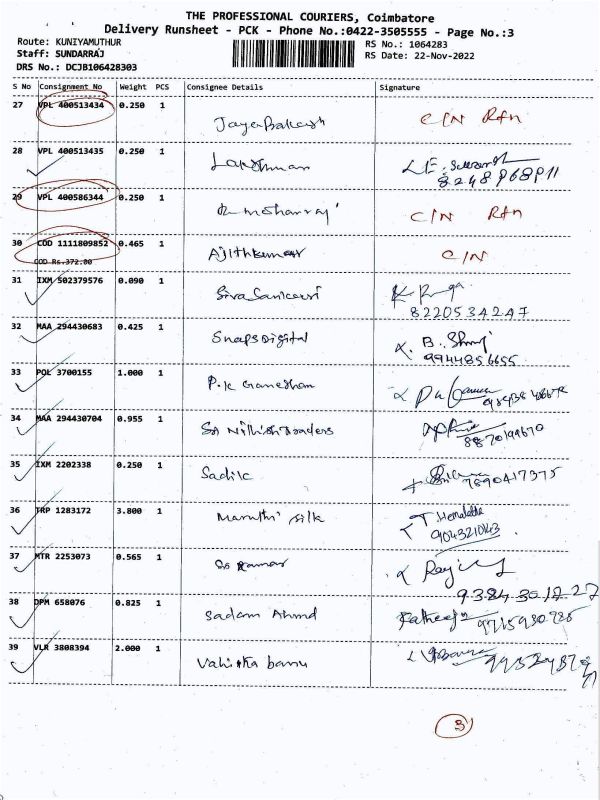 THE PROFESSIONAL COURIERS, Coimbatore
Delivery Runsheet - PCK - Phone No.:0422-3505555 - Page No.:3
Route: KUNIYAMUTHUR
RS No.: 1064283
Staff: SUNDARRAJ
RS Date: 22-Nov-2022
DRS No.: DCJB106428303
S No Consignment No Weight PCS Consignee Details Signature
27 VPL 400513434 0.250 1 C/N Rtn
28 VPL 400513435 0.250 1 Lakshman
29 VPL 400586344 0.250 1 C/N Rtn
30 COD 1111809852 0.465 1 Ajithkumar C/N
COD Rs.372.00
31 IXM 502379576 0.090 1
8220534247
32 MAA 294430683 0.425 1 SnapsDigital
9944856655
33 POL 3700155 1.000 1 P.K Ganeshan
34 MAA 294430704 0.955 1 Sri Nithish Traders
8870199670
35 IXM 2202338 0.250 1 Sadik
7890417375
36 TRP 1283172 3.800 1 Maruthi silk T. Hemalatha
9043210143
37 MTR 2253073 0.565 1
9384301227
38 DPM 658076 0.825 1 Sadam Ahmd
39 VLR 3808394 2.000 1 Vahitha banu
3